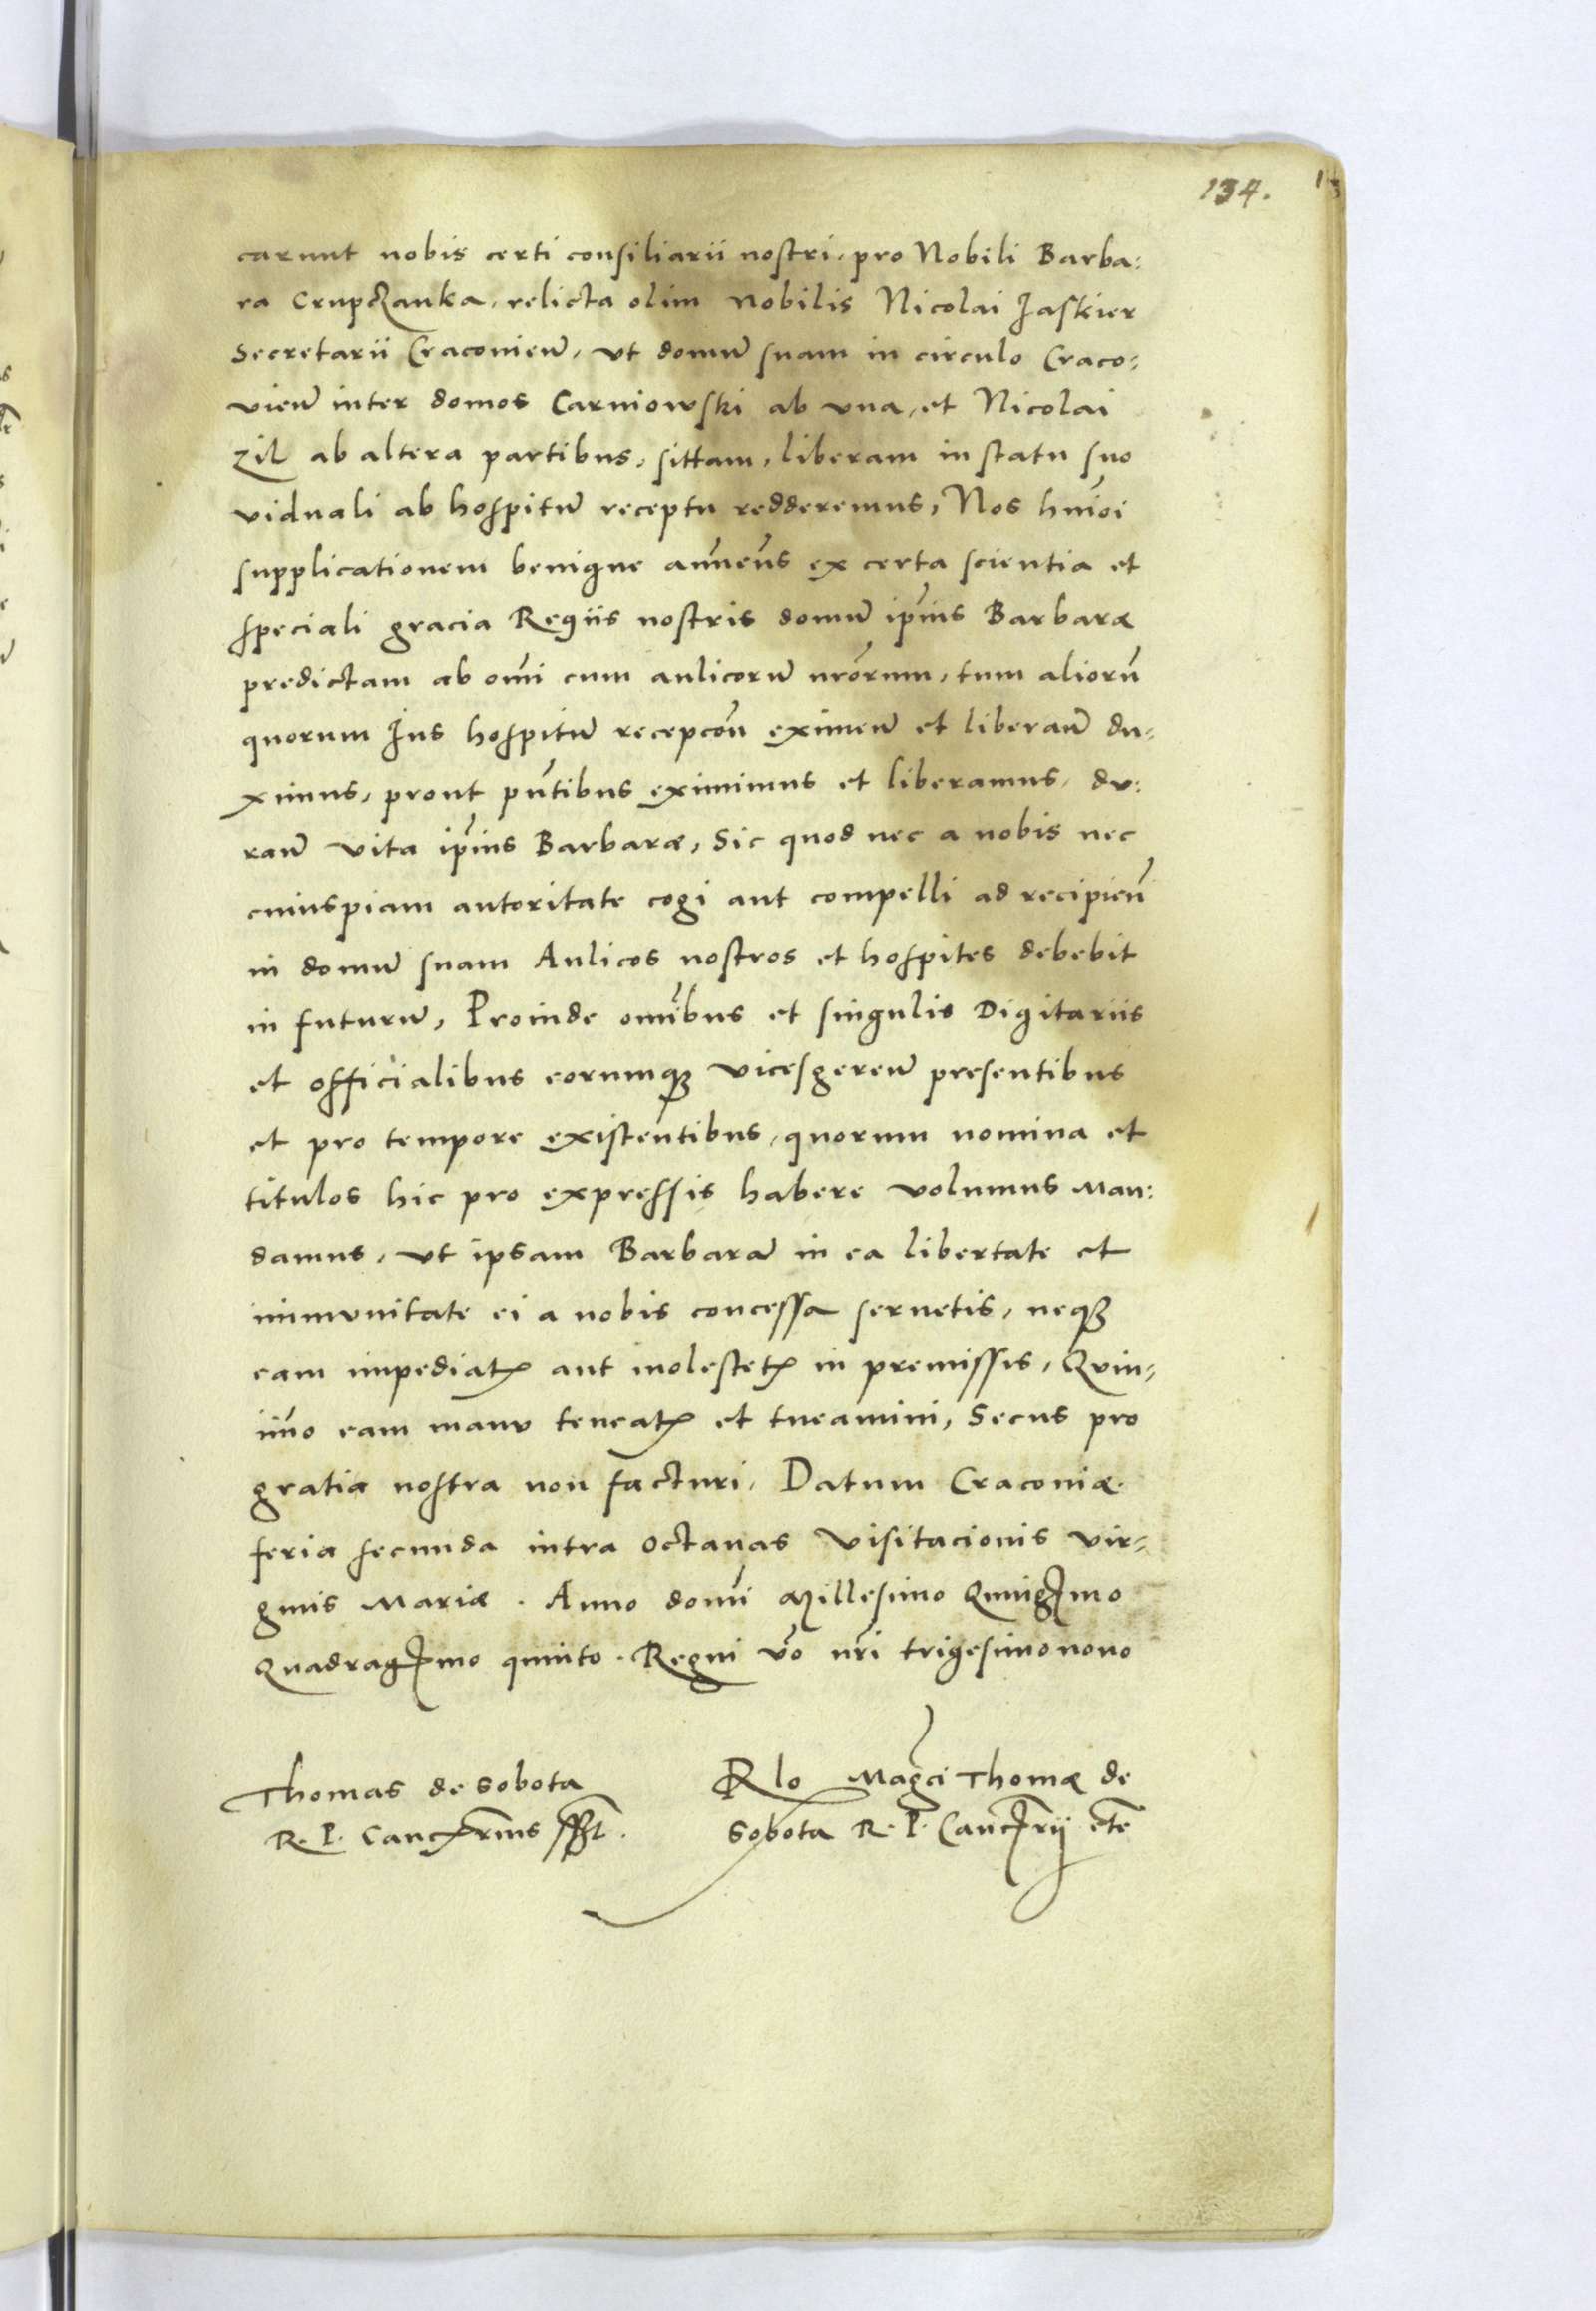 134.
carunt nobis certi consiliarii nostri, pro Nobili Barba:
ra Crupczanka, relicta olim Nobilis Nicolai Jaskier
Secretarii Cracovieñ, ut domũ suam in circulo Craco:
vieñ inter domos Carniowski ab una, et Nicolai
Zil ab altera partibus, sittam, liberam in statu suo
viduali ab hospitũ receptu redderemus, Nos hm̃oi
supplicationem benigne anñeñs ex certa scientia et
speciali gracia Regiis nostris domũ ip̃ius Barbaræ
predictam ab om̃i cum aulicorũ nr̃orum, tum aliorũ
quorum Jus hospitũ recepcoñ eximeñ et liberañ du,
ximus, prout pñtibus eximimus et liberamus, du:
rañ vita ip̃ius Barbaræ, Sic quod nec a nobis nec
cuiuspiam autoritate cogi aut compelli ad recipieñ
in domũ suam Aulicos nostros et hospites debebit
in futurũ, Proinde om̃ibus et singulis Digitariis
et officialibus eorumqȝ vicesgereñ presentibus
et pro tempore existentibus, quorum nomina et
titulos hic pro expressis habere volumus Man:
damus, ut ipsam Barbarã in ea libertate et
immunitate ei a nobis concessa servetis, neqȝ
eam impediatꝭ aut molestetꝭ in premissis, Quin,
im̃o eam manu teneatꝭ et tueamini, Secus pro
gratia nostra non facturi. Datum Cracoviæ.
feria secunda intra octavas Visitacionis Vir,
ginis Mariæ. Anno domi͂ Millesimo Quingꝭmo
Quadragꝭmo quinto. Regni v̄o nr̃i trigesimonono
Thomas de Sobota
R. P. Cancꝭrius sst.
Rlo Magci Thomæ de
Sobota R. P. Cancꝭrii etc